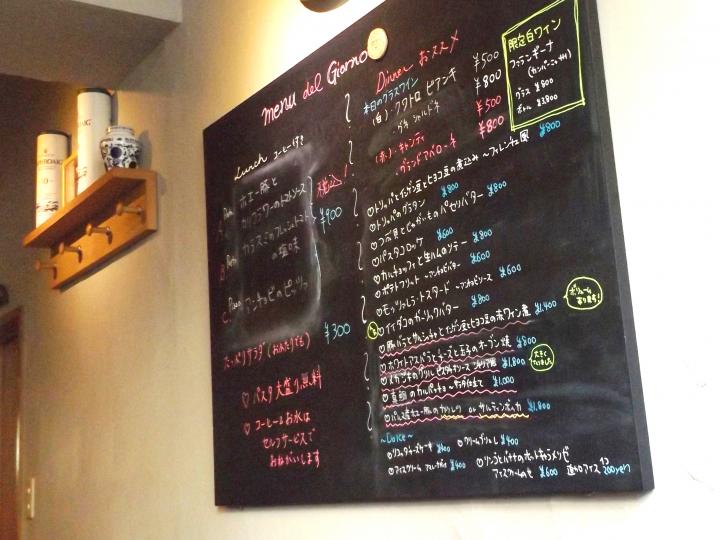 Menu del Giorno
Lunch コーヒー付き
A Plan ホエー豚と
カリフラワーのトマトソース
B Plan カラスミのフレッシュトマト
の塩味
C Plan アンチョビのピッツァ
税込!
¥900
たっぷりサラダ(おふたりでも) ¥300
♡パスタ大盛り無料
♡コーヒー&お水は
セルフサービスで
おねがいします
Dinner おススメ
本日のグラスワイン
(白)・クアトロ ビアンキ ¥500
シャルドネ ¥800
(赤)・キャンティ ¥500
・グランドアベローネ ¥800
限定白ワイン
ファランギーナ
(カンパーニャ州)
グラス ¥800
ボトル ¥3,800
♡トリッパとインゲン豆とヒヨコ豆の煮込み ~フィレンチェ風 ¥800
♡トリッパのグラタン ¥800
♡つぶ貝とじゃがいものパセリバター ¥800
♡パスタコロッケ ¥600
♡カルチョッフィと生ハムのソテー ¥800
♡ポテトフリット ~アンチョビバター ¥600
♡モッツァレラ・トスタード ~アンチョビソース ¥600
♡イイダコのガーリックバター ¥800
♡豚バラとサルシッチャとインゲン豆とヒヨコ豆の赤ワイン煮 ¥1,400
ボリューム
あります!
♡ホワイトアスパラとチーズと玉子のオーブン焼 ¥800
♡メカジキのグリル ピスタチオソース シチリア風 ¥1,800
大きく
なりました
♡真鯛のカルパッチョ ~サラダ仕立て ¥1,000
♡パルマ産ホエー豚のカツレツ or サルティンボッカ ¥1,800
~Dolce~
♡リコッタチーズケーキ ¥400 ♡クリームブリュレ ¥400
♡アイスクリーム アフォガード ¥400 ♡リンゴとバナナのホットキャラメリゼ
アイスクリームのせ ¥600 追加アイス 1コ 200yen